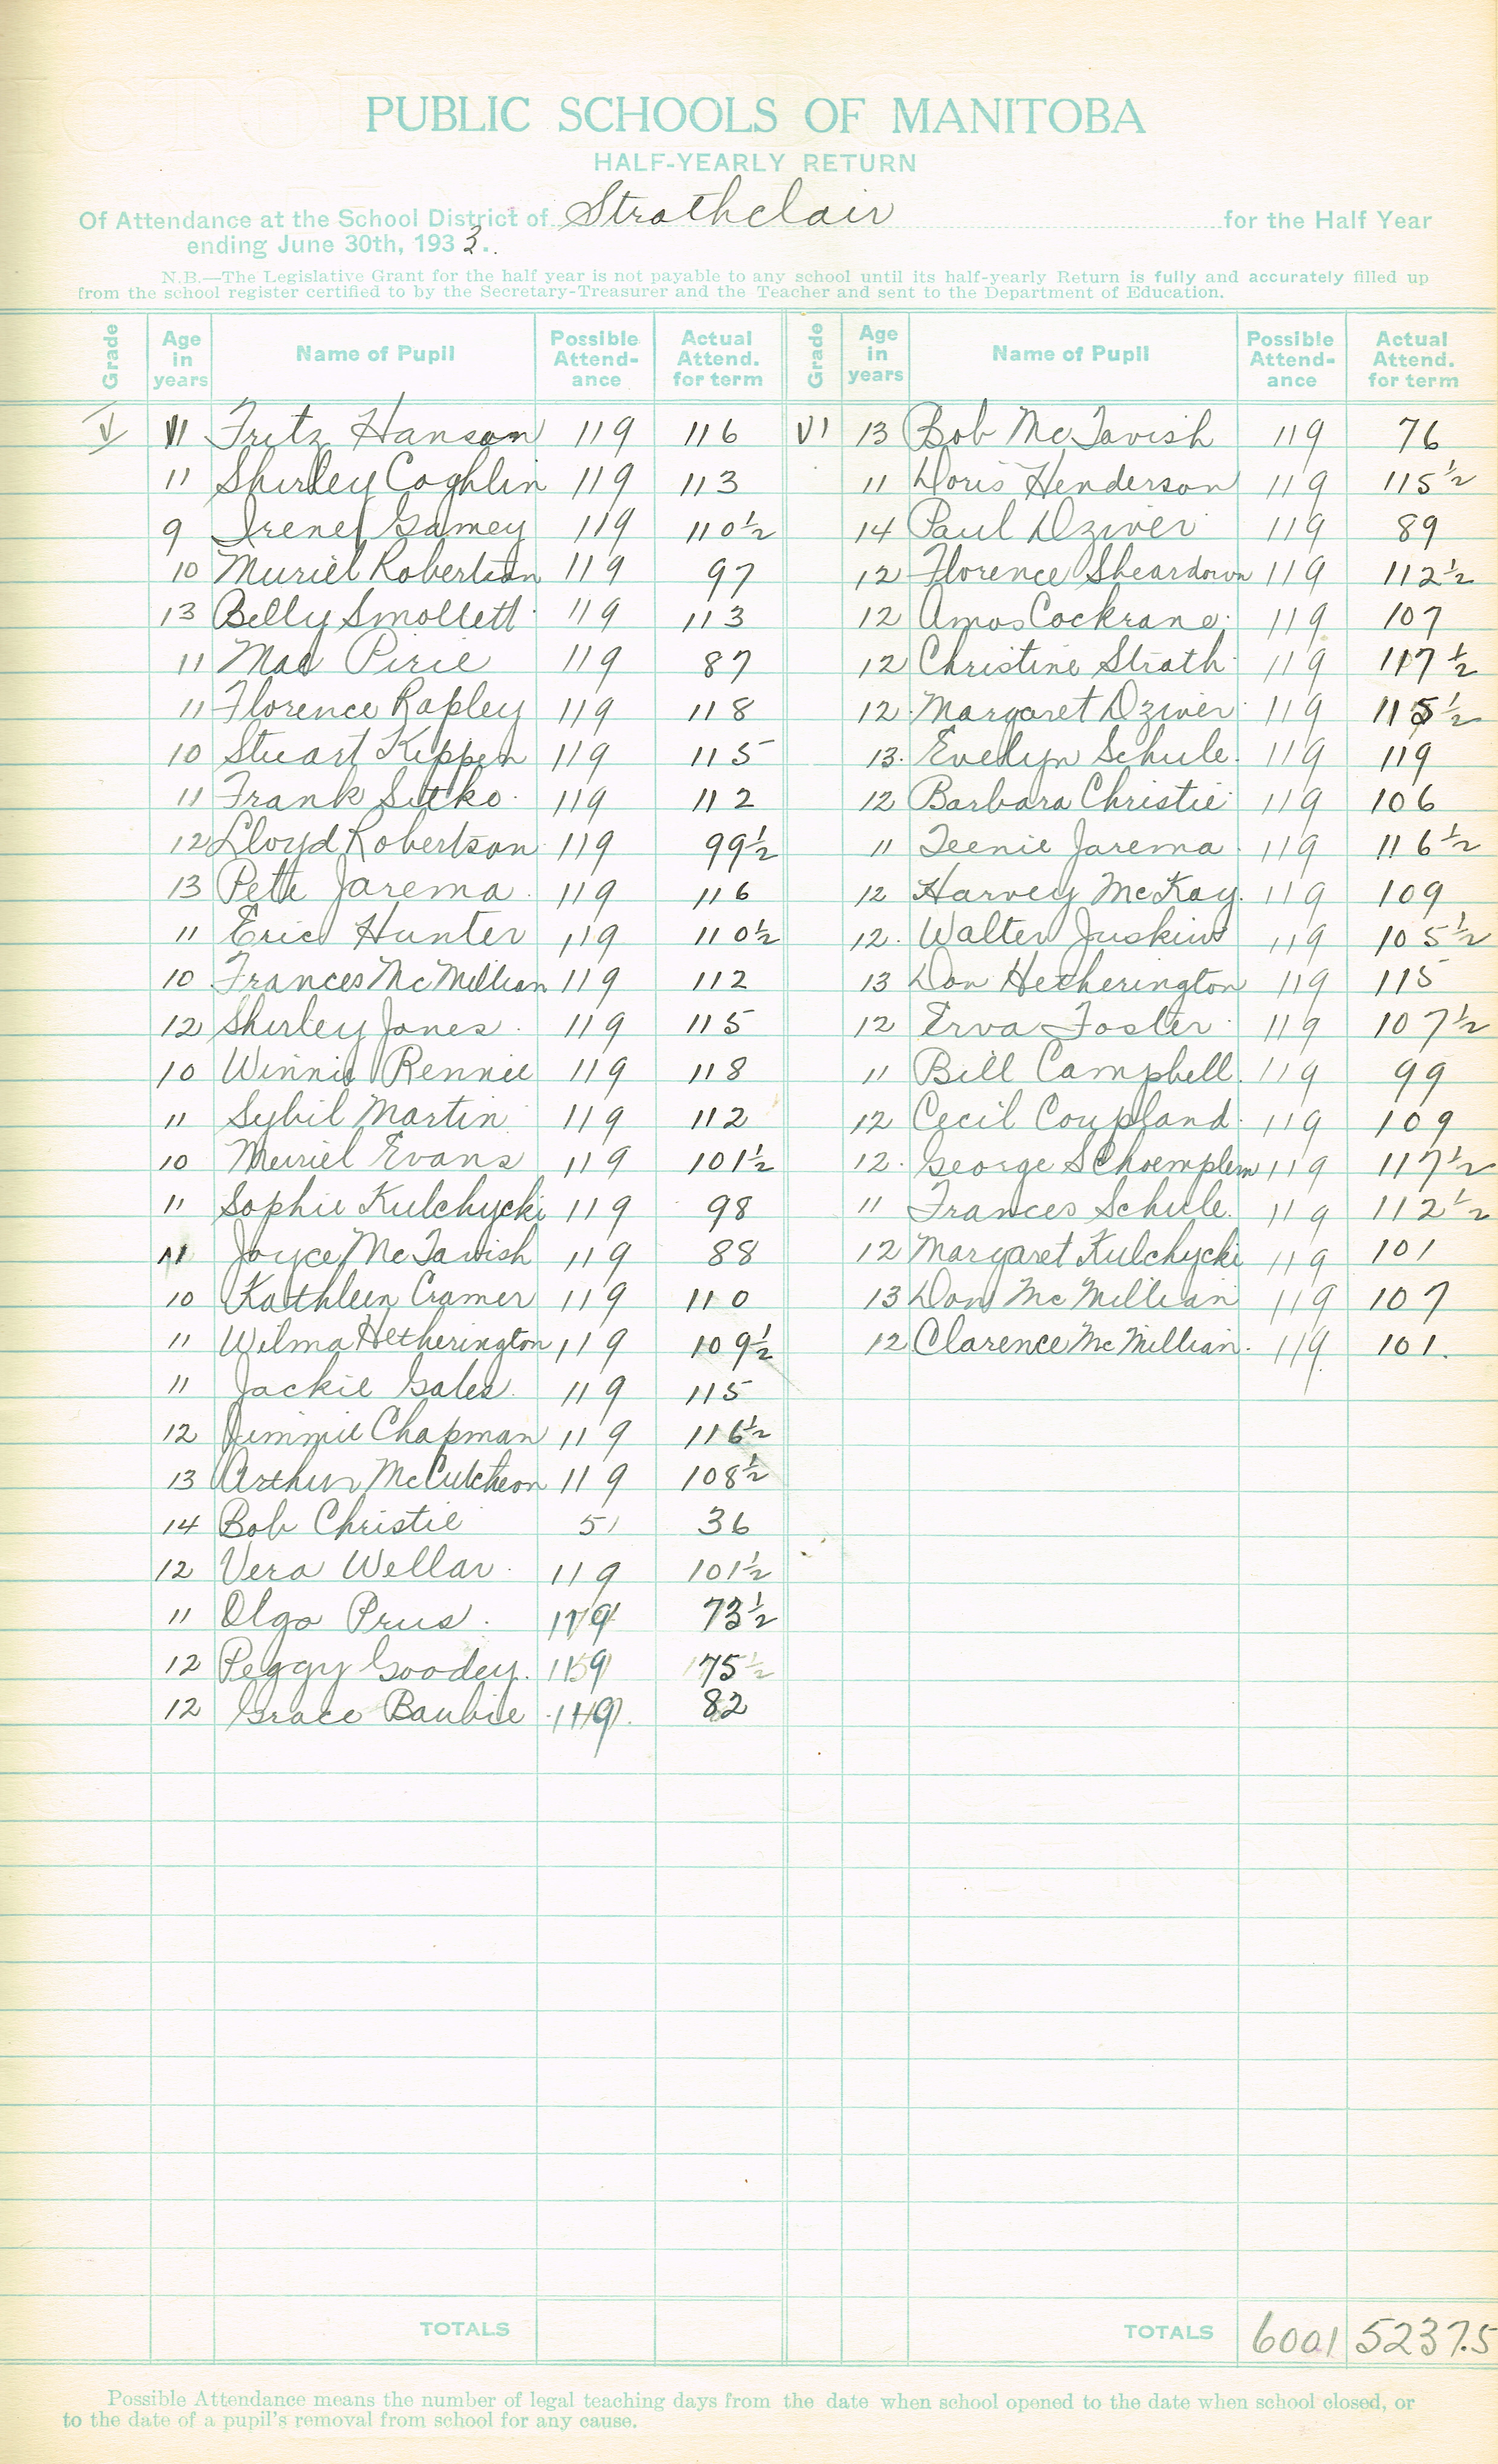 PUBLIC SCHOOLS OF MANITOBA
HALF-YEARLY RETURN
Of Attendance at the School District of Strathclair for the Half Year
ending June 30th, 193
N.B.—The Legislative Grant for the half year is not payable to any school until its half-yearly Return is fully and accurately filled up
from the school register certified to by the Secretary-Treasurer and the Teacher and sent to the Department of Education.
Grade Age in years Name of Pupil Possible Attend-ance Actual Attend. for term Grade Age in years Name of Pupil Possible Attend-ance Actual Attend. for term
V 11 Fritz Hanson 119 116 VI 13 Bob McTavish 119 76
11 Shirley Coghlin 119 113 11 Doris Henderson 119 115½
9 Irene Gamey 119 110½ 14 Paul Dziver 119 89
10 Muriel Robertson 119 97 12 Florence Sheardown 119 112½
13 Billy Smollett 119 113 12 Amos Cockrane 119 107
11 Mae Pirie 119 87 12 Christine Strath 119 117½
11 Florence Rapley 119 118 12 Margaret Dziver 119 115½
10 Stuart Kippen 119 115 13 Evelyn Schule 119 119
11 Frank Sitko 119 112 12 Barbara Christie 119 106
12 Lloyd Robertson 119 99½ 11 Teenie Jarema 119 116½
13 Pete Jarema 119 116 12 Harvey McKay 119 109
11 Eric Hunter 119 110½ 12 Walter Juskiw 119 105½
10 Frances McMillian 119 112 13 Don Hetherington 119 115
12 Shirley Jones 119 115 12 Erva Foster 119 107½
10 Winnie Rennie 119 118 11 Bill Campbell 119 99
11 Sybil Martin 119 112 12 Cecil Coupland 119 109
10 Muriel Evans 119 101½ 12 George Schoemplem 119 117½
11 Sophie Kulchycki 119 98 11 Frances Schule 119 112½
11 Joyce McTavish 119 88 12 Margaret Kulchycki 119 101
10 Kathleen Cramer 119 110 13 Don McMillian 119 107
11 Wilma Hetherington 119 109½ 12 Clarence McMillian 119 101
11 Jackie Gales 119 115
12 Jimmie Chapman 119 116½
13 Arthur McCutcheon 119 108½
14 Bob Christie 51 36
12 Vera Wellar 119 101½
11 Olga Prus 119 73½
12 Peggy Goodey 119 75½
12 Grace Baubie 119 82
TOTALS TOTALS 6001 5237.5
Possible Attendance means the number of legal teaching days from the date when school opened to the date when school closed, or
to the date of a pupil's removal from school for any cause.